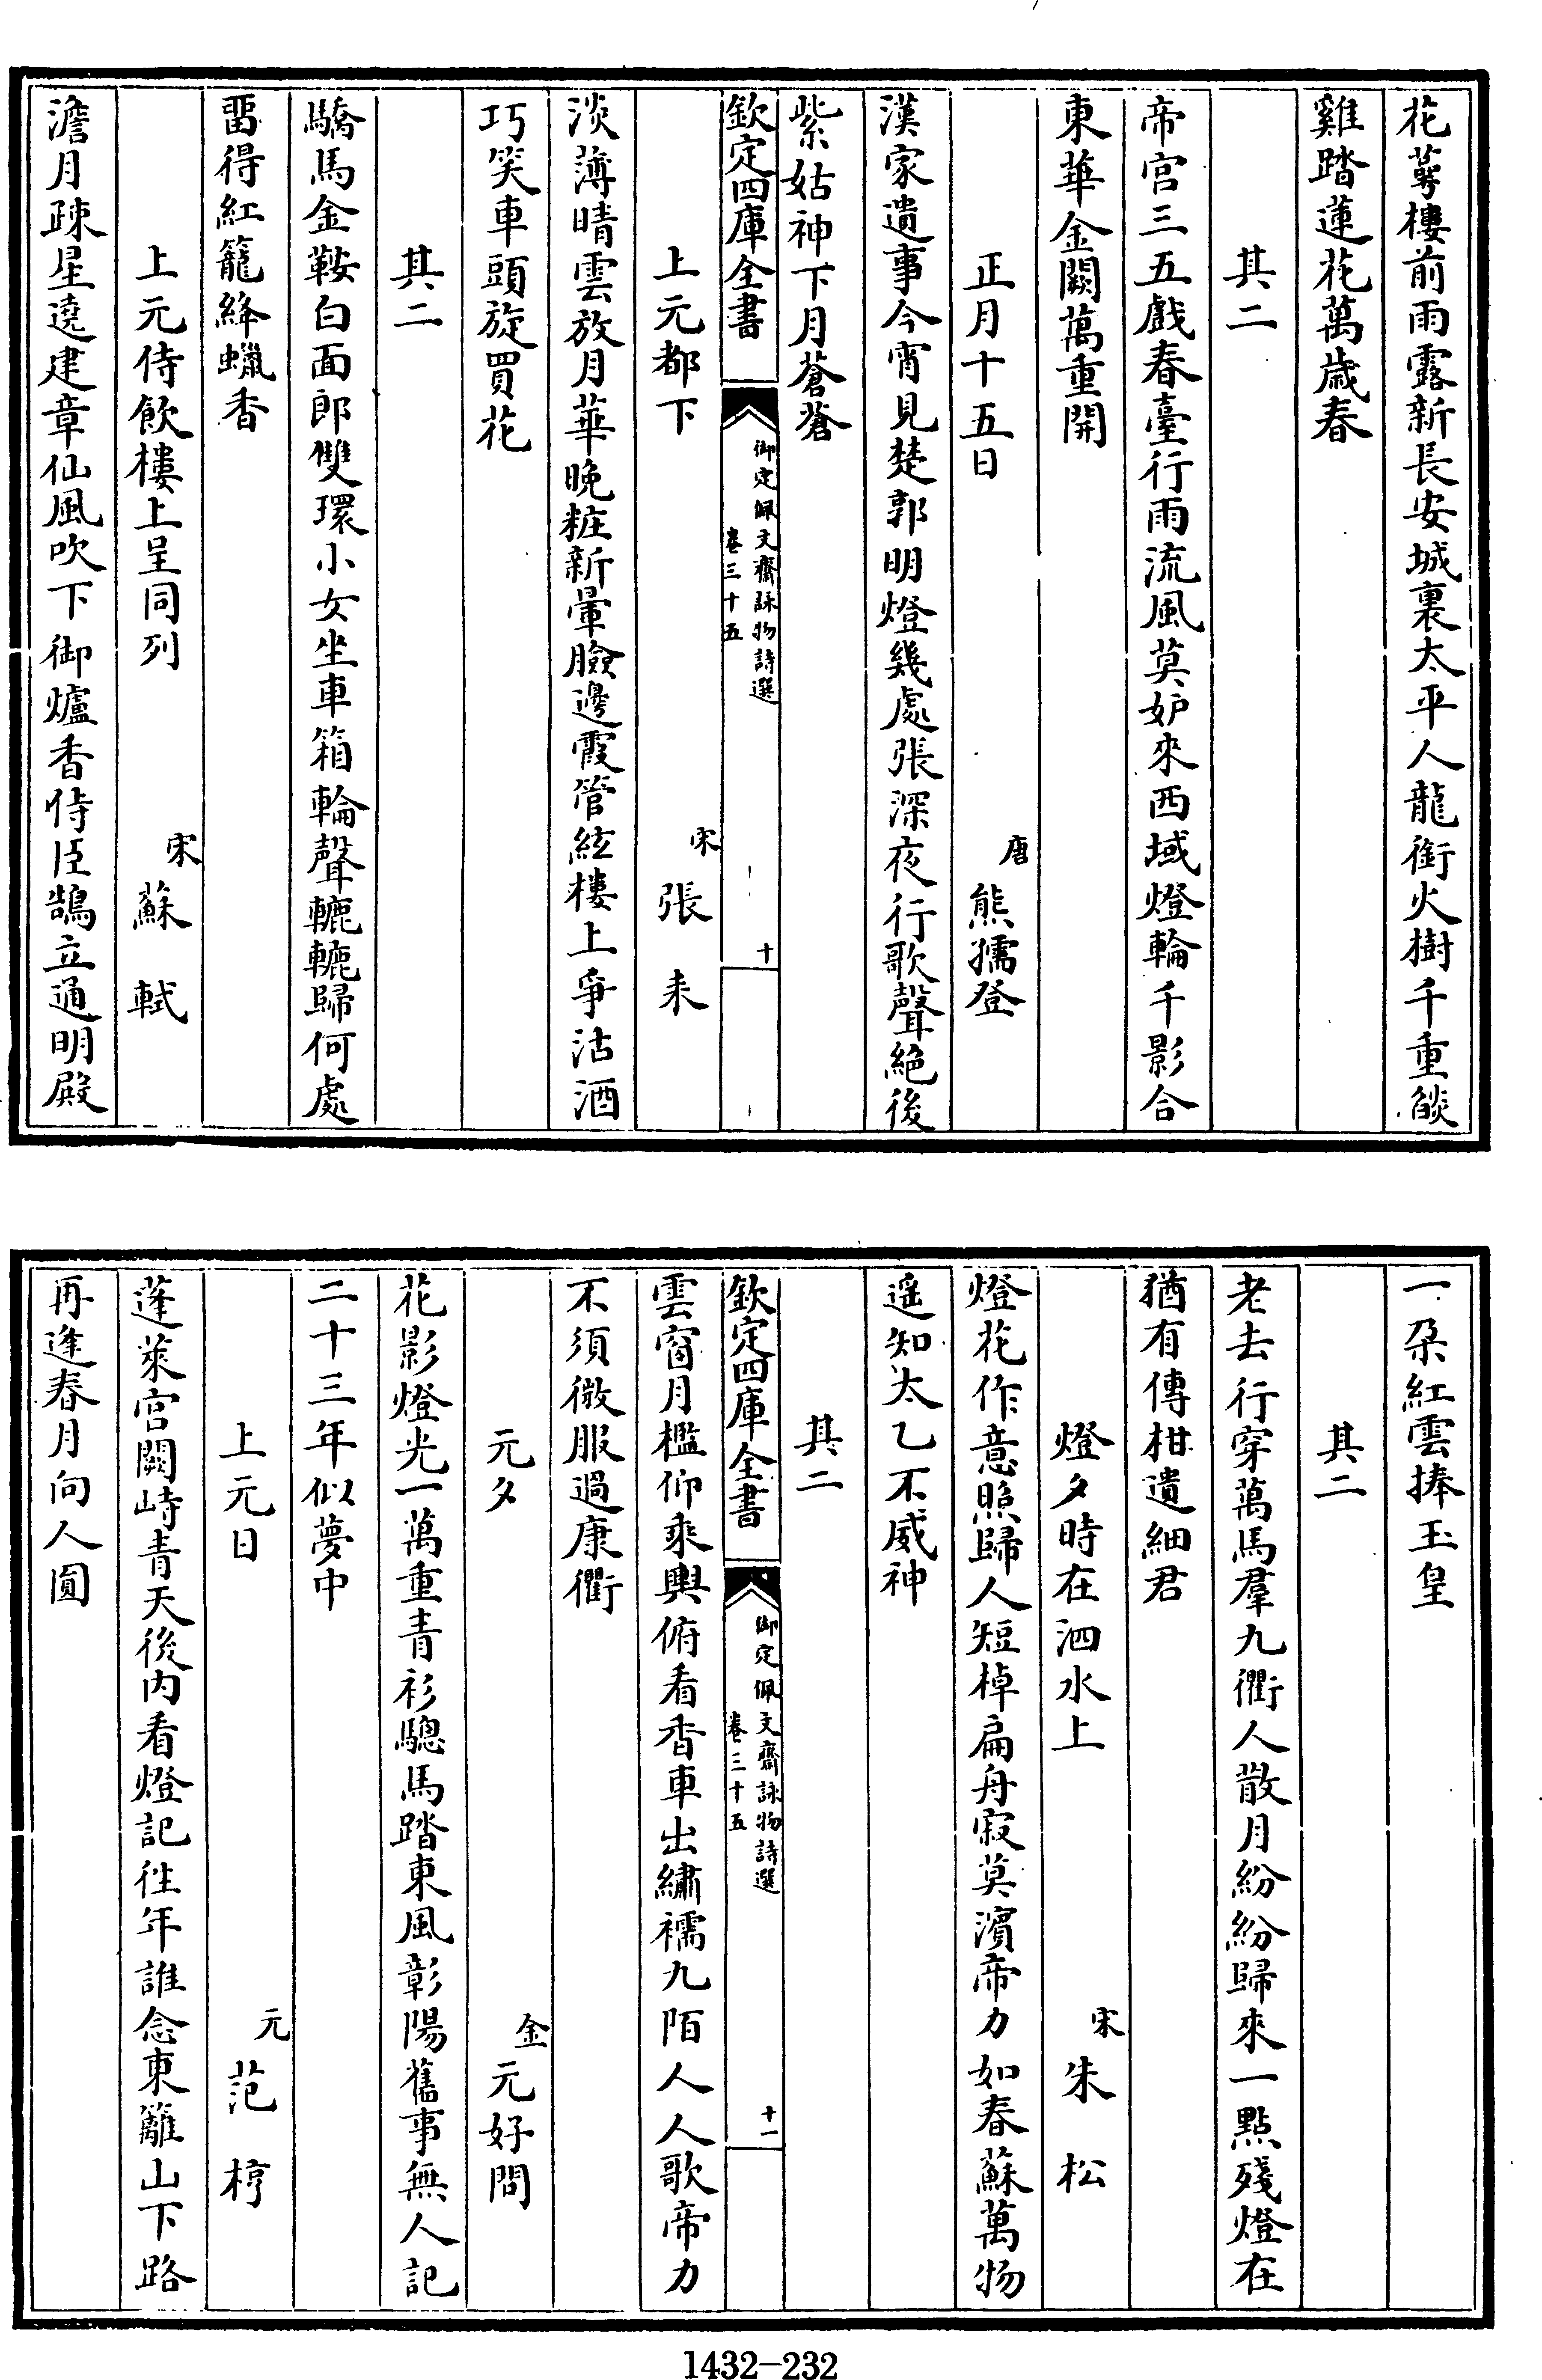 花萼樓前雨露新長安城裏太平人龍銜火樹千重燄
雞踏蓮花萬歲春
其二
帝宫三五戲春臺行雨流風莫妒來西域燈輪千影合
東華金闕萬重開
正月十五日
唐熊孺登
漢家遺事今宵見楚郭明燈幾處張深夜行歌聲絶後
紫姑神下月蒼蒼
欽定四庫全書
御定佩文齋詠物詩選
卷三十五
十
上元都下
宋張耒
淡薄晴雲放月華晚粧新暈臉邊霞管絃樓上爭沽酒
巧笑車頭旋買花
其二
驕馬金鞍白面郎雙環小女坐車箱輪聲轆轆歸何處
畱得紅籠絳蠟香
上元侍飲樓上呈同列
宋蘇軾
澹月疎星遶建章仙風吹下御爐香侍臣鵠立通明殿
一朶紅雲捧玉皇
其二
老去行穿萬馬羣九衢人散月紛紛歸來一點殘燈在
猶有傳柑遺細君
燈夕時在泗水上
宋朱松
燈花作意照歸人短棹扁舟寂莫濱帝力如春蘇萬物
遥知太乙不威神
其二
欽定四庫全書
御定佩文齋詠物詩選
卷三十五
十一
雲窗月檻仰乘輿俯看香車出繡襦九陌人人歌帝力
不須微服過康衢
元夕
金元好問
花影燈光一萬重青衫驄馬踏東風彰陽舊事無人記
二十三年似夢中
上元日
元范梈
蓬萊宫闕峙青天後内看燈記徃年誰念東籬山下路
再逢春月向人圓
1432-232